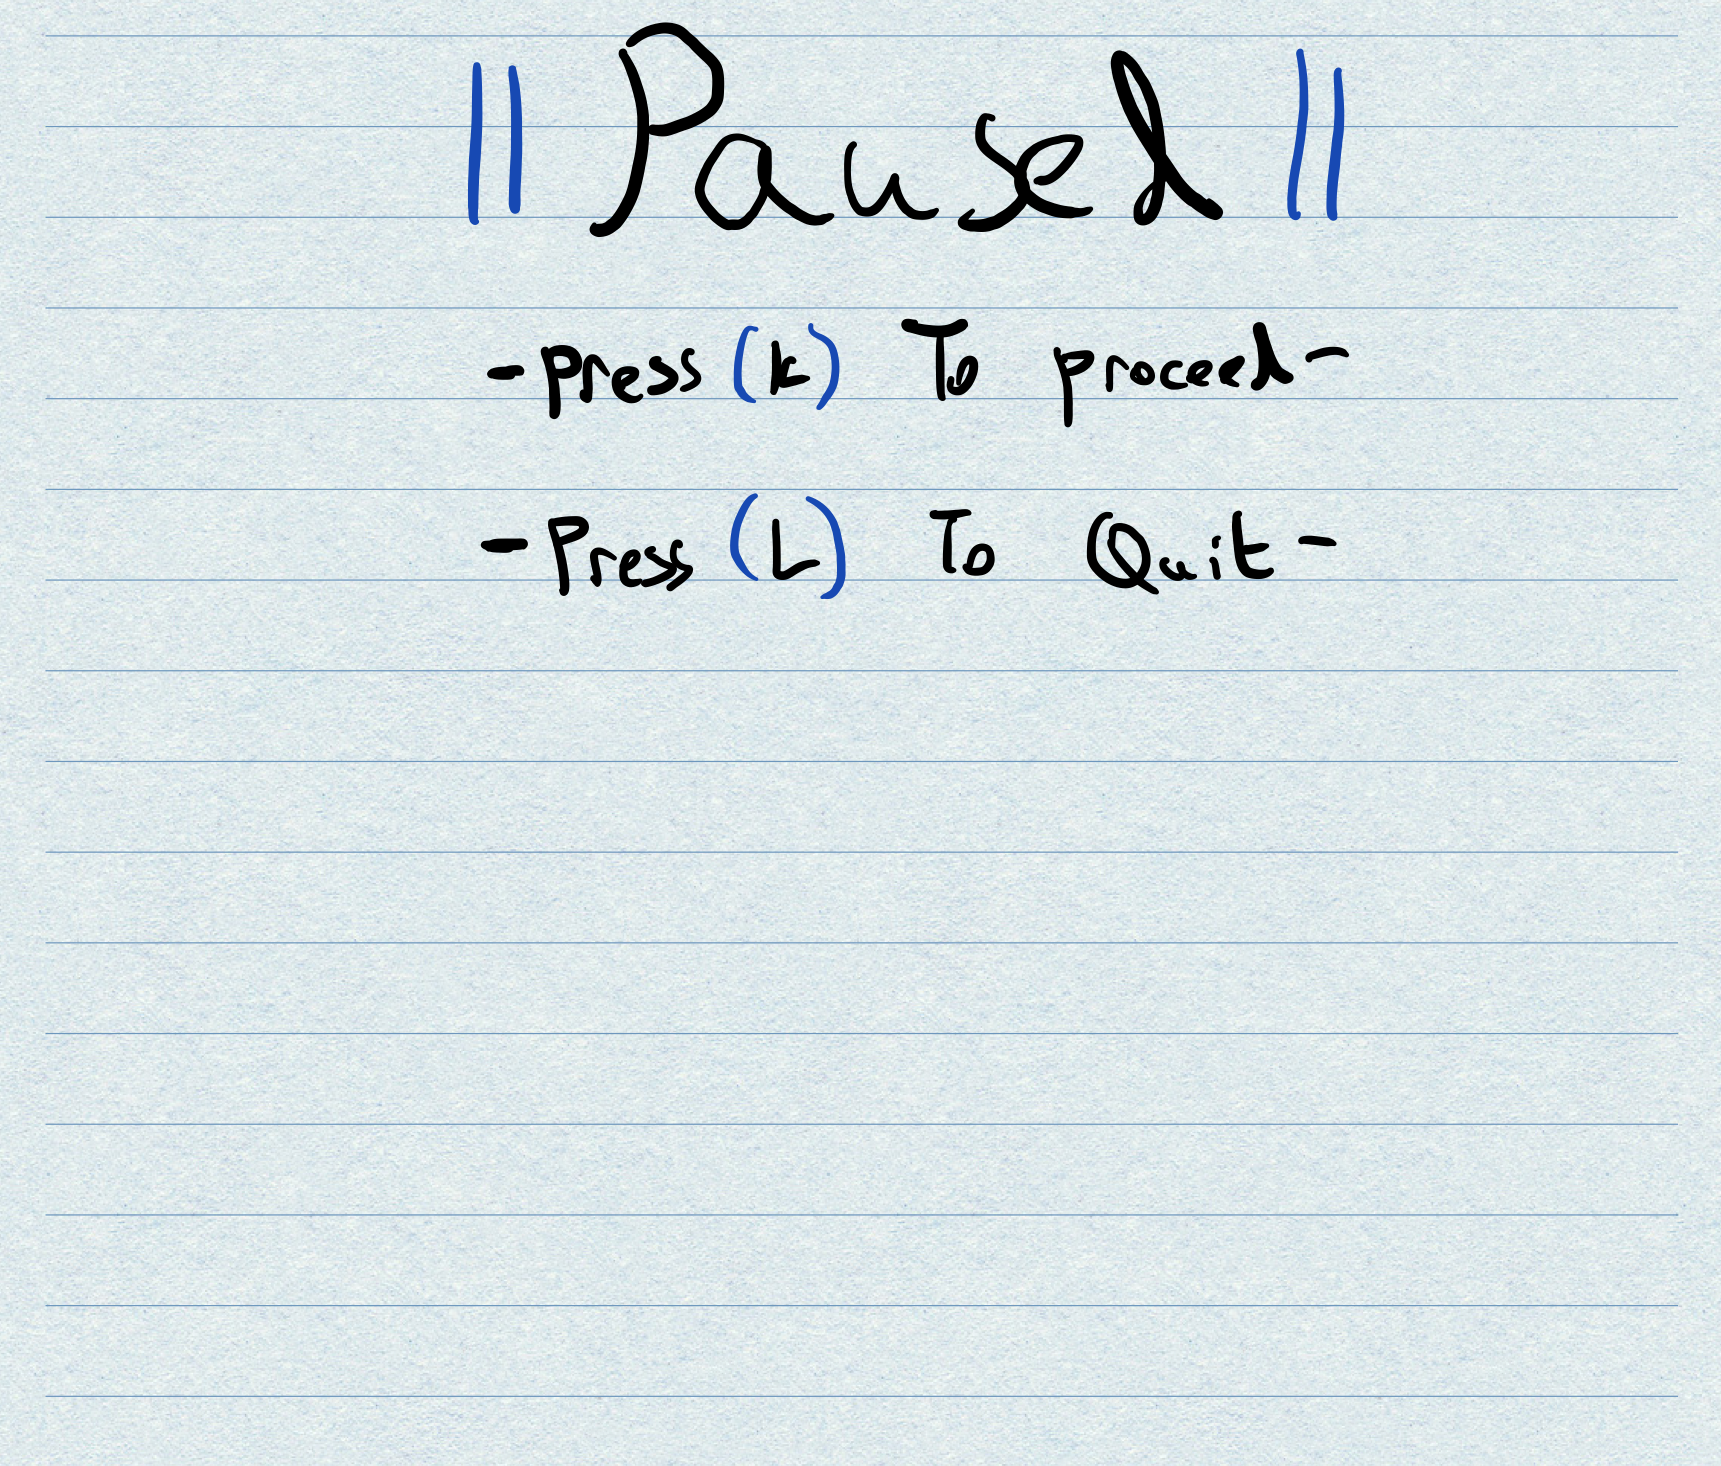 || Paused ||
-press (k) To proceed-
-Press (L) To Quit-